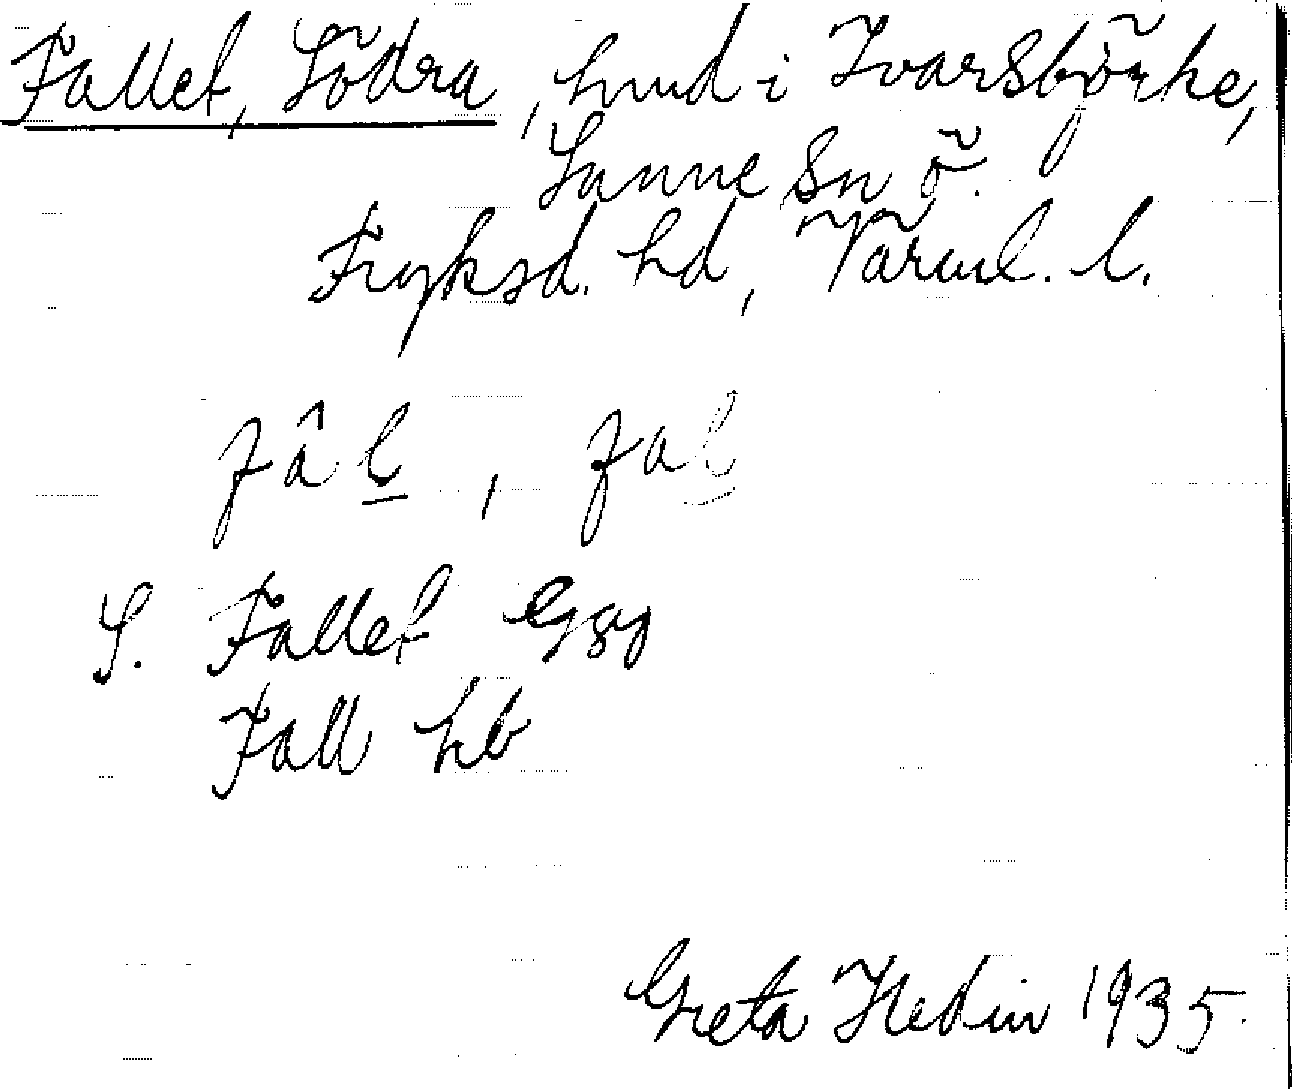 Fallet, Södra, hmd i Ivarsbjörke,
Sunne Sn ö.
Fryksd. hd, Värml. l.
fâl, fal
S. Fallet Gsg
Fall hb
Greta Hedin 1935.